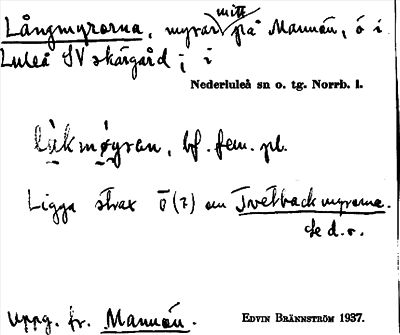 Långmyrorna, myrar mitt på Mannön, ö i
Luleå SV skärgård; i
Nederluleå sn o. tg. Norrb. l.
làkmǿyran, bf. fem. pl.
Ligga strax ö (?) om Tvetbackmyrorna.
se d.o.
Uppg. fr. Mannön. EDVIN BRÄNNSTRÖM 1937.